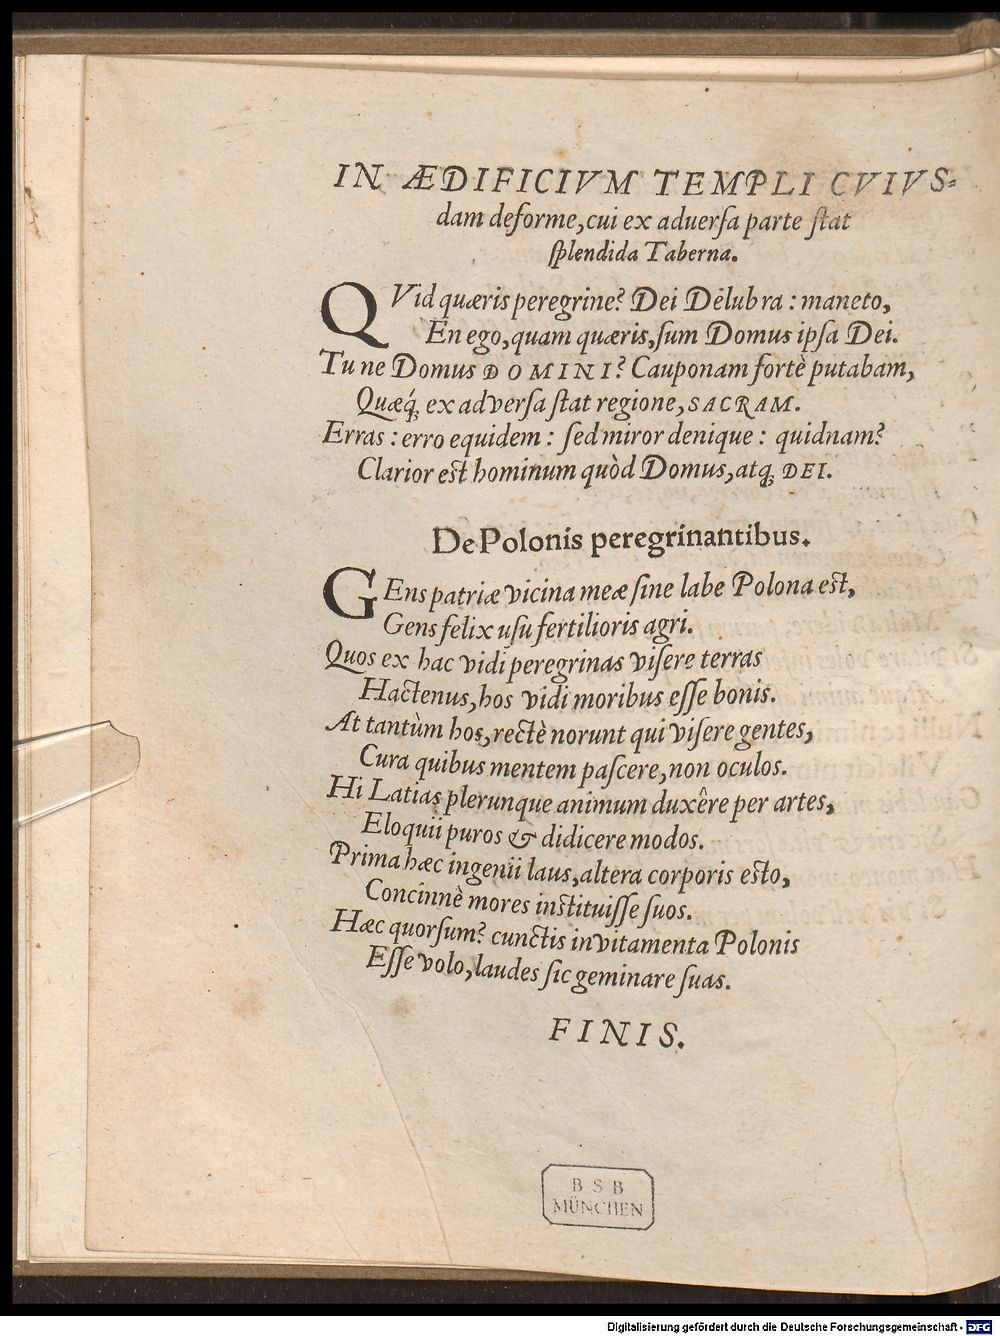 IN ÆDIFICIVM TEMPLI CVIVS-
dam deforme, cui ex aduerſa parte ſtat
ſplendida Taberna.
QVid quæris peregrine? Dei Delubra: maneto,
En ego, quam quæris, ſum Domus ipſa Dei.
Tu ne Domus DOMINI? Cauponam fortè putabam,
Quæq́; ex adverſa ſtat regione, SACRAM.
Erras: erro equidem: ſed miror denique: quidnam?
Clarior eſt hominum quòd Domus, atq; DEI.
De Polonis peregrinantibus.
GEns patriæ vicina meæ ſine labe Polona eſt,
Gens felix uſu fertilioris agri.
Quos ex hac vidi peregrinas viſere terras
Hactenus, hos vidi moribus eſſe bonis.
At tantùm hos, rectè norunt qui viſere gentes,
Cura quibus mentem paſcere, non oculos.
Hi Latias plerunque animum duxêre per artes,
Eloquii puros & didicere modos.
Prima hæc ingenii laus, altera corporis eſto,
Concinnè mores inſtituiſſe ſuos.
Hæc quorſum? cunctis invitamenta Polonis
Eſſe volo, laudes ſic geminare ſuas.
FINIS.
BSB
MÜNCHEN
Digitalisierung gefördert durch die Deutsche Forschungsgemeinschaft - DFG